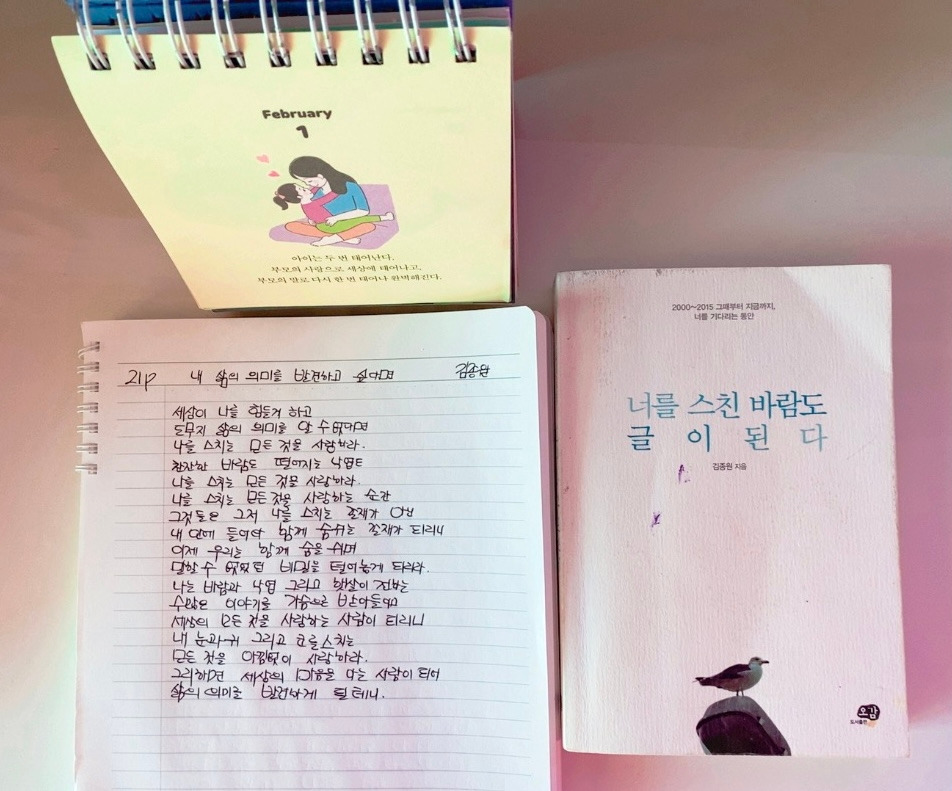 February
1
아이는 두 번 태어난다.
부모의 사랑으로 세상에 태어나고,
부모의 말로 다시 한 번 태어나 완벽해진다.
21p 내 삶의 의미를 발견하고 싶다면 김종원
세상이 나를 힘들게 하고
도무지 삶의 의미를 알 수 없다면
나를 스치는 모든 것을 사랑하라.
잔잔한 바람도 떨어지는 낙엽도
나를 스치는 모든 것을 사랑하라.
나를 스치는 모든 것을 사랑하는 순간
그것들은 그저 나를 스치는 존재가 아닌
내 안에 들어와 함께 숨쉬는 존재가 되리니
이제 우리는 함께 숨을 쉬며
말할 수 없었던 비밀을 털어놓게 되리라.
나는 바람과 낙엽 그리고 햇살이 전하는
수많은 이야기를 가슴으로 받아들이며
세상의 모든 것을 사랑하는 사람이 되리니
내 눈과 귀 그리고 코를 스치는
모든 것을 아낌없이 사랑하라.
그리하면 세상의 마음을 아는 사람이 되어
삶의 의미를 발견하게 될 테니.
2000~2015 그때부터 지금까지,
너를 기다리는 동안
너를 스친 바람도
글이 된다
김종원 지음
오감
도서출판